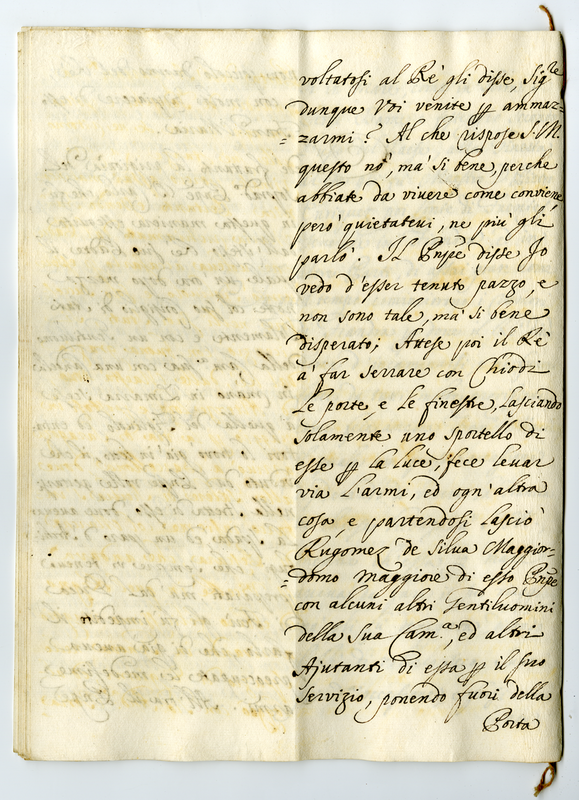 voltatosi al Rè gli disse, Sig.re
dunque Voi venite p ammaz=
=zarmi? Al che rispose S. M.
questo nò, mà si bene, perche
abbiate da vivere come conviene,
però quietatevi, ne più gli
parlò. Il Pnpe disse Io
vedo d'esser tenuto pazzo, e
non sono tale, mà si bene
disperato; Attese poi il Rè
à far serrare con Chiodi
Le porte, e Le finestre, Lasciando
solamente uno sportello di
esse p La Luce, fece levar
via L'armi, ed ogn'altra
cosa, e partendosi Lasciò
Rugomez de Silva Maggior=
=domo Maggiore di esso Pnpe
con alcuni altri Gentiluomini
della Sua Cam.a, ed altri
Ajutanti di essa p il suo
Servizio, ponendo fuori della
Porta